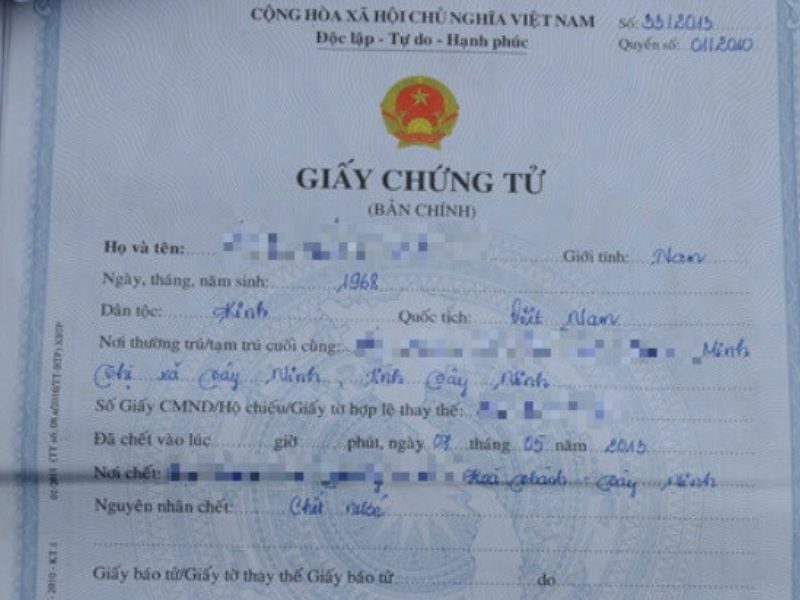 CỘNG HÒA XÃ HỘI CHỦ NGHĨA VIỆT NAM
Độc lập - Tự do - Hạnh phúc
Số: 33/2013
Quyển số: 01/2010
GIẤY CHỨNG TỬ
(BẢN CHÍNH)
Họ và tên: Giới tính: Nam
Ngày, tháng, năm sinh: 1968
Dân tộc: Kinh Quốc tịch: Việt Nam
Nơi thường trú/tạm trú cuối cùng: Minh
Thị xã Tây Ninh, tỉnh Tây Ninh
Số Giấy CMND/Hộ chiếu/Giấy tờ hợp lệ thay thế:
Đã chết vào lúc giờ phút, ngày 07 tháng 05 năm 2013
Nơi chết: Thành - Tây Ninh
Nguyên nhân chết: Chết nước
Giấy báo tử/Giấy tờ thay thế Giấy báo tử do